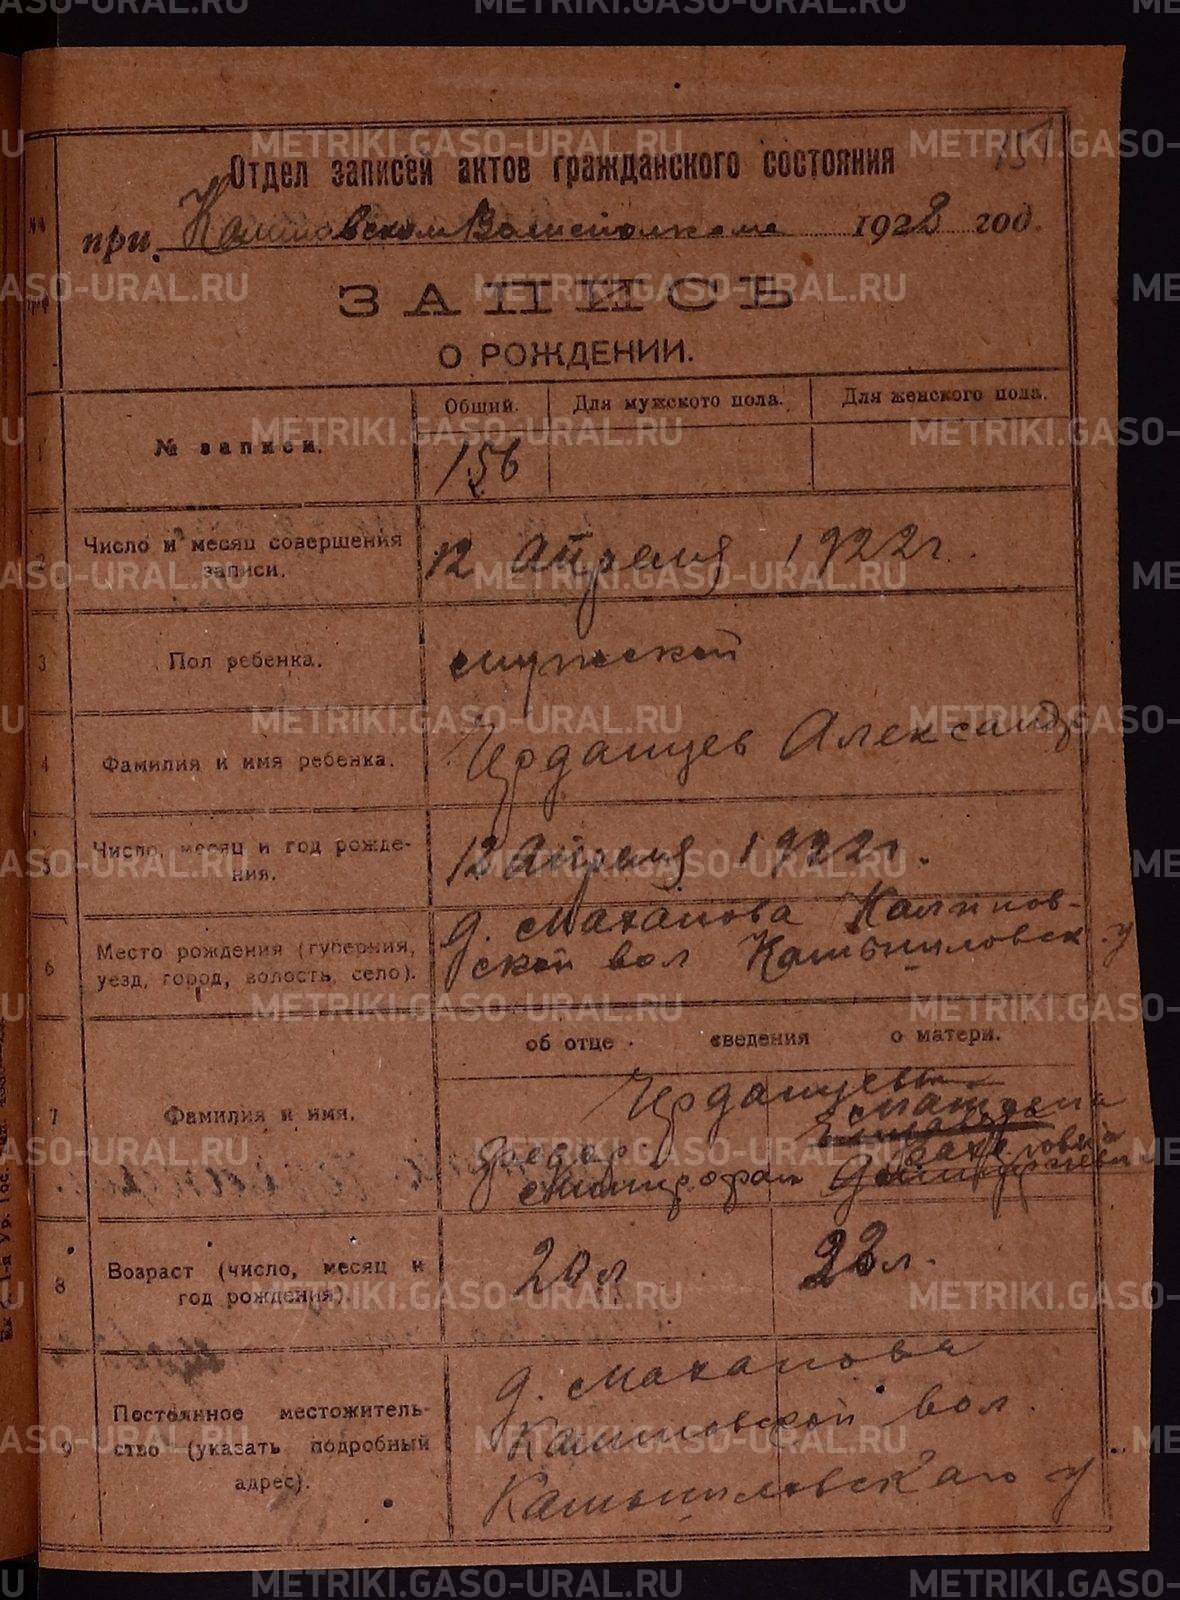 151
Отдел записей актов гражданского состояния
при Калиновском Волисполкоме 1922 год.
ЗАПИСЬ
О РОЖДЕНИИ.
Общий. Для мужского пола. Для женского пола.
1 № записи. 156
2 Число и месяц совершения записи. 12 Апреля 1922 г.
3 Пол ребенка. мужской
4 Фамилия и имя ребенка. Черданцев Александр
5 Число, месяц и год рожде-
ния. 12 Апреля 1922 г.
6 Место рождения (губерния,
уезд, город, волость, село). д. Маханова Калинов-
ской вол Камышловск. у
об отце сведения о матери.
7 Фамилия и имя. Черданцевы
Федор Матрена
Митрофан
8 Возраст (число, месяц и
год рождения). 20 л 23 л.
9 Постоянное местожитель-
ство (указать подробный
адрес). д. Маханова
Калиновской вол.
Камышловскаго у
METRIKI.GASO-URAL.RU